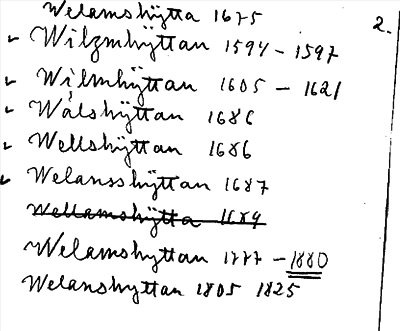 Welamshÿtta 1675 2.
Wilzmhÿttan 1594 - 1597
Wilmhÿttan 1605 - 1621
Wålshÿttan 1686
Wellshÿttan 1686
Welansshÿttan 1687
Wellamshÿtta 1689
Welamshyttan 1777 - 1880
Welanshyttan 1805 1825